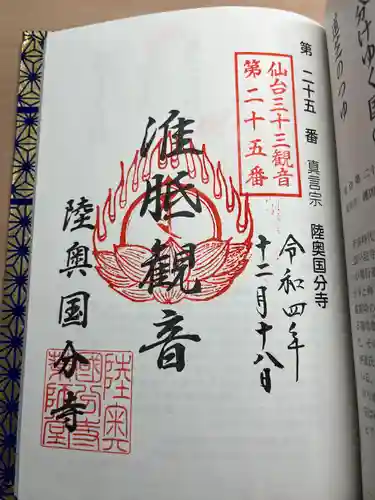 第二十五番 真言宗 陸奥国分寺
仙台三十三観音
第二十五番
令和四年
十二月十八日
准胝観音
陸奥国分寺
陸奥
國分寺
薬師堂